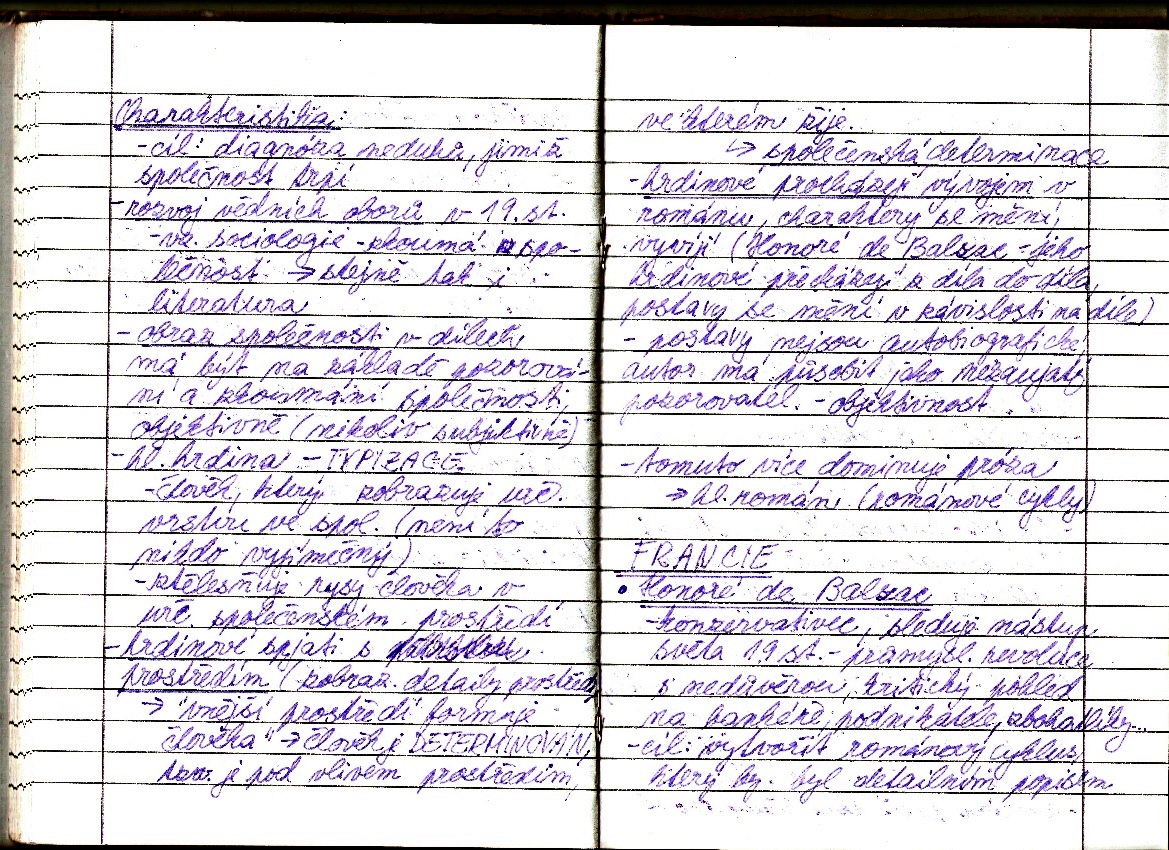 Charakteristika:
-cíl: diagnóza neduhů, jimiž
společnost trpí
-rozvoj vědních oborů v 19. st.
-vz. sociologie - zkoumá spo-
lečnosti → stejně tak i
literatura
- obraz společnosti v dílech,
má být na základě pozorová-
ní a zkoumání společnosti,
objektivně (nikoliv subjektivně)
- hl. hrdina - TYPIZACE
-člověk, který zobrazuje urč.
vrstvu ve spol. (není to
nikdo vyjímečný)
-ztělesňuje rysy člověka v
urč společenském prostředí
- hrdinové spjati s
prostředím (zobraz. detaily prostředí)
→ "vnější prostředí formuje
člověka" → člověk je DETERMINOVÁN,
je pod vlivem prostředím,
ve kterém žije.
↳ společenská determinace
-hrdinové procházejí vývojem v
románu, charaktery se mění,
vyvíjí (Honoré de Balzac - jeho
hrdinové přecházejí z díla do díla,
postavy se mění v závislosti na díle)
- postavy nejsou autobiografické,
autor má působit jako nezaujatý
pozorovatel. - objektivnost
-tomuto více dominuje próza
→ hl. román, (románové cykly)
FRANCIE
• Honoré de Balzac
-konzervativec, sleduje nástup
světa 19 st. - průmysl. revoluce
s nedůvěrou, kritický pohled
na bankéře, podnikatele, zbohatlíky...
-cíl: vytvořit románový cyklus,
který by. byl detailním popisem